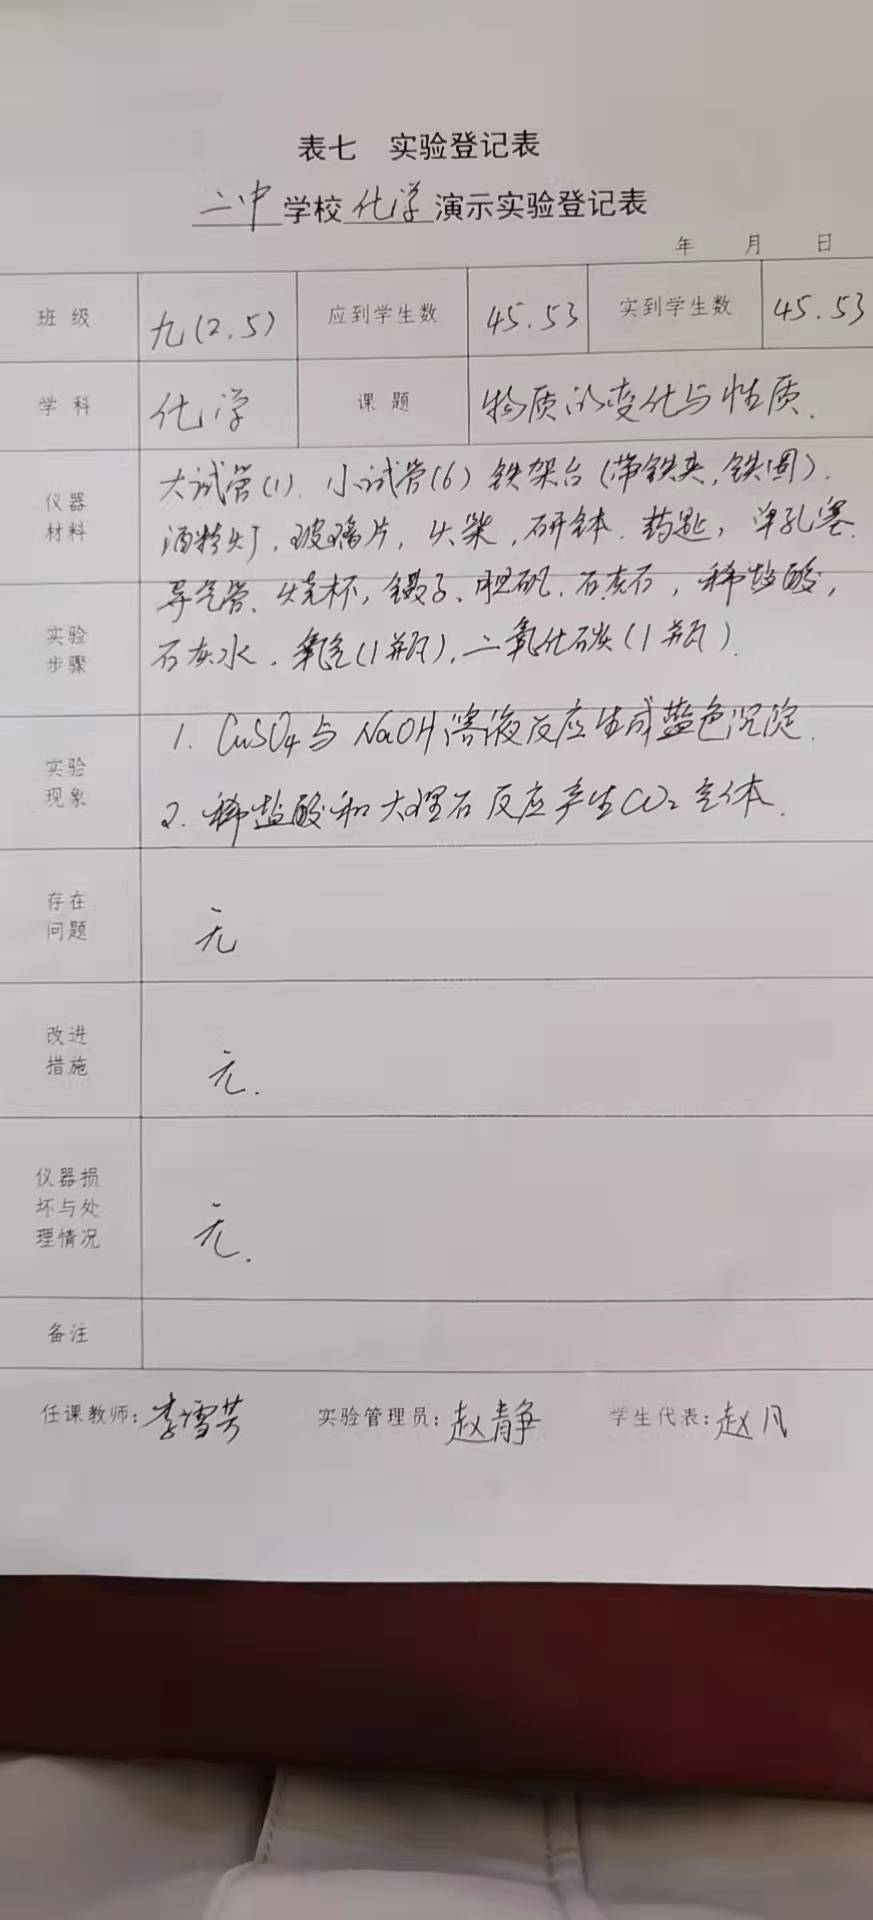 表七 实验登记表
二中学校化学演示实验登记表
年 月 日
班级 九(2.5) 应到学生数 45.53 实到学生数 45.53
学科 化学 课题 物质的变化与性质.
仪器材料 大试管(1). 小试管(6) 铁架台(带铁夹,铁圈).
酒精灯, 玻璃片, 火柴, 研钵. 药匙, 单孔塞.
导气管、烧杯, 镊子、胆矾. 石灰石, 稀盐酸,
实验步骤 石灰水. 氧气(1瓶), 二氧化碳(1瓶).
实验现象 1. CuSO4与NaOH溶液反应生成蓝色沉淀.
2. 稀盐酸和大理石反应产生CO2气体.
存在问题 无
改进措施 无.
仪器损坏与处理情况 无.
备注
任课教师: 李雪芳 实验管理员: 赵静 学生代表: 赵凡